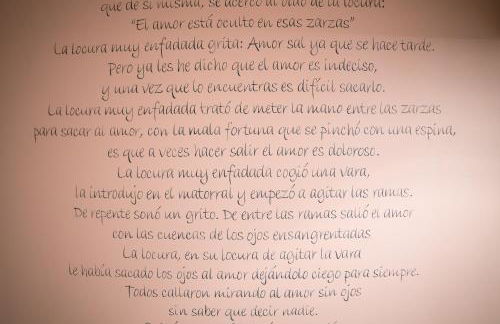 que de si misma, se acercó al oído de la locura:
"El amor está oculto en esas zarzas"
La locura muy enfadada grita: Amor sal ya que se hace tarde.
Pero ya les he dicho que el amor es indeciso,
y una vez que lo encuentras es difícil sacarlo.
La locura muy enfadada trató de meter la mano entre las zarzas
para sacar al amor, con la mala fortuna que se pinchó con una espina,
es que a veces hacer salir el amor es doloroso.
La locura muy enfadada cogió una vara,
la introdujo en el matorral y empezó a agitar las ramas.
De repente sonó un grito. De entre las ramas salió el amor
con las cuencas de los ojos ensangrentadas
La locura, en su locura de agitar la vara
le había sacado los ojos al amor dejándolo ciego para siempre.
Todos callaron mirando al amor sin ojos
sin saber que decir nadie.